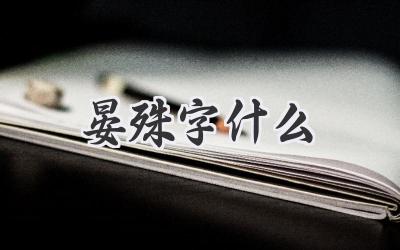 晏殊字什么